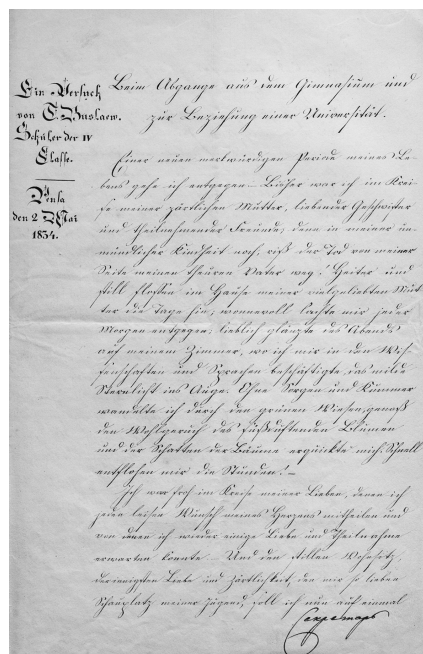 Ein Versuch
von T. Buslaew.
Schüler der IV
Classe.
Pensa
den 2 Mai
1834.
Beim Abgange aus dem Gimnasium und
zur Beziehung einer Universität.
Einer neuen merkwürdigen Periode meines Le-
bens gehe ich entgegen. Bisher war ich im Krei-
se meiner zärtlichen Mutter, liebender Geschwister
und theilnehmender Freunde; denn in meiner un-
mündlicher Kindheit noch, riß der Tod von meiner
Seite meinen theuren Vater weg. Heiter und
still flossen im Hause meiner vielgeliebten Mut-
ter die Tage hin; wonnevoll lachte mir jeder
Morgen entgegen; lieblich glänzte des Abends
auf meinem Zimmer, wo ich mir in den Wis-
senschaften und Sprachen beschäftigte, das milde
Sternlicht ins Auge. Ohne Sorgen und Kummer
wandelte ich durch den grünen Wiesen, genoß
den Wohlgeruch des süßduftenden Blumen
und der Schatten der Bäume erquickte mich. Schnell
entflohen mir die Stunden! –
Ich war froh im Kreise meiner Lieben, denen ich
jeden leisen Wunsch meines Herzens mittheilen und
von denen ich wieder einige Liebe und Theilnahme
erwarten konnte. – Und den stillen Wohnsitz,
der innigsten Liebe und Zärtlichkeit, den mir so lieben
Schauplatz meiner Jugend, soll ich nun auf einmal
Секретарь